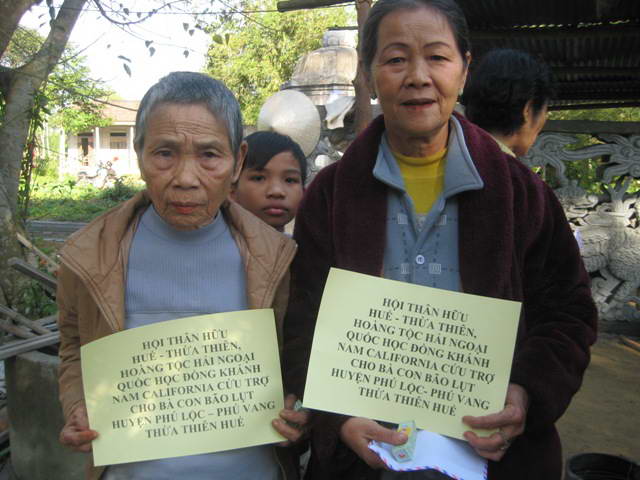 HỘI THÂN HỮU
HUẾ - THỪA THIÊN,
HOÀNG TỘC HẢI NGOẠI
QUỐC HỌC ĐỒNG KHÁNH
NAM CALIFORNIA CỨU TRỢ
CHO BÀ CON BÃO LỤT
HUYỆN PHÚ LỘC – PHÚ VANG
THỪA THIÊN HUẾ
HỘI THÂN HỮU
HUẾ - THỪA THIÊN,
HOÀNG TỘC HẢI NGOẠI
QUỐC HỌC ĐỒNG KHÁNH
NAM CALIFORNIA CỨU TRỢ
CHO BÀ CON BÃO LỤT
HUYỆN PHÚ LỘC- PHÚ VANG
THỪA THIÊN HUẾ